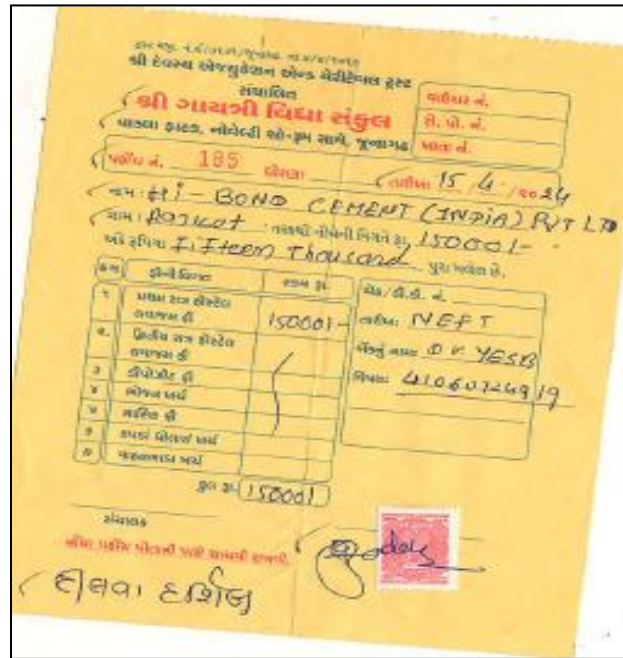 શ્રી દેવસ્ય એજ્યુકેશન એન્ડ ચેરીટેબલ ટ્રસ્ટ
સંચાલિત
શ્રી ગાયત્રી વિદ્યા સંકુલ
ફાટક, નોવેલ્ટી શો-રૂમ સામે, જૂનાગઢ
વાઉચર નં.
રી. પો. નં.
ખાતા નં.
પહોંચ નં. 185 તારીખ 15/4/2024
નામ : HI-BOND CEMENT (INDIA) PVT LTD
ગામ : Rajkot તરફથી નીચેની વિગતે રૂા. 15000/-
અંકે રૂપિયા Fifteen Thousand પુરા મળેલ છે.
ક્રમ ફીની વિગત રકમ રૂા.
૧ પ્રથમ સત્ર હોસ્ટેલ
લવાજમ ફી 15000/-
૨. દ્વિતીય સત્ર હોસ્ટેલ
લવાજમ ફી
૩ ડીપોઝીટ ફી
૪ ભોજન ખર્ચ
૫ માસિક ફી
૬ કપડાં ધોલાઈ ખર્ચ
૭ ખર્ચ
કુલ રૂા. 15000/
ચેક/ડી.ડી. નં.
તારીખ: NEFT
બેંકનું નામ: YESB
વિગત: 41060724919
સંચાલક
પહોંચ પોતાની પાસે સાચવી રાખવી.